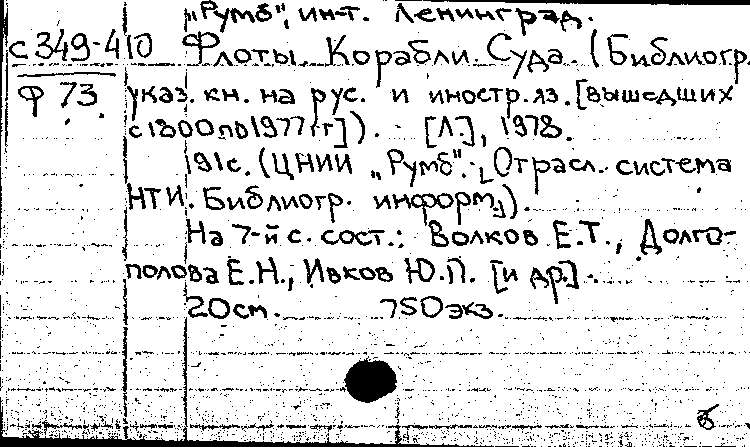 „Румб", ин-т. Ленинград.
с 349-410 Флоты. Корабли. Суда. (Библиогр.
Ф 73. указ. кн. на рус. и иностр. яз. [вышедших
с 1800 по 1977 гг]). - [Л.], 1978.
191 с. (ЦНИИ „Румб". Отрасл. система
НТИ. Библиогр. информ.).
На 7-й с. сост.: Волков Е.Т., Долго-
полова Е.Н., Ивков Ю.П. [и др.].
20 см. 750 экз.